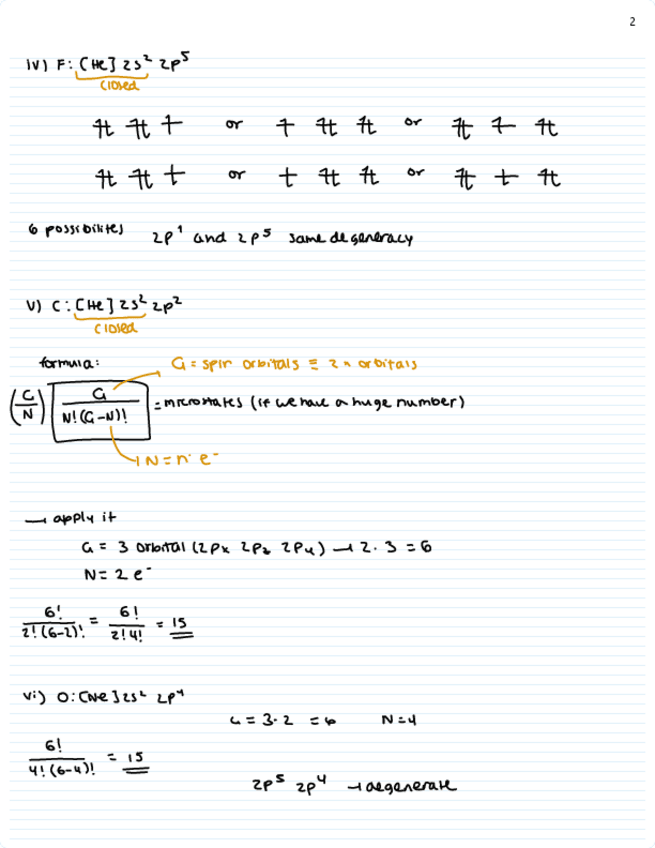 2
iv) F: [He] 2s² 2p⁵
closed
or or
or or
6 possibilites 2p¹ and 2p⁵ same degeneracy
v) C: [He] 2s² 2p²
closed
formula: G = spin orbitals = 2 × orbitals
(G/N) G / N!(G-N)! = microstates (if we have a huge number)
N = n° e⁻
→ apply it
G = 3 orbital (2px 2pz 2py) → 2 · 3 = 6
N = 2 e⁻
6! / 2!(6-2)! = 6! / 2!4! = 15
vi) O: [Ne] 2s² 2p⁴
G = 3 · 2 = 6 N = 4
6! / 4!(6-4)! = 15
2p⁵ 2p⁴ → degenerate